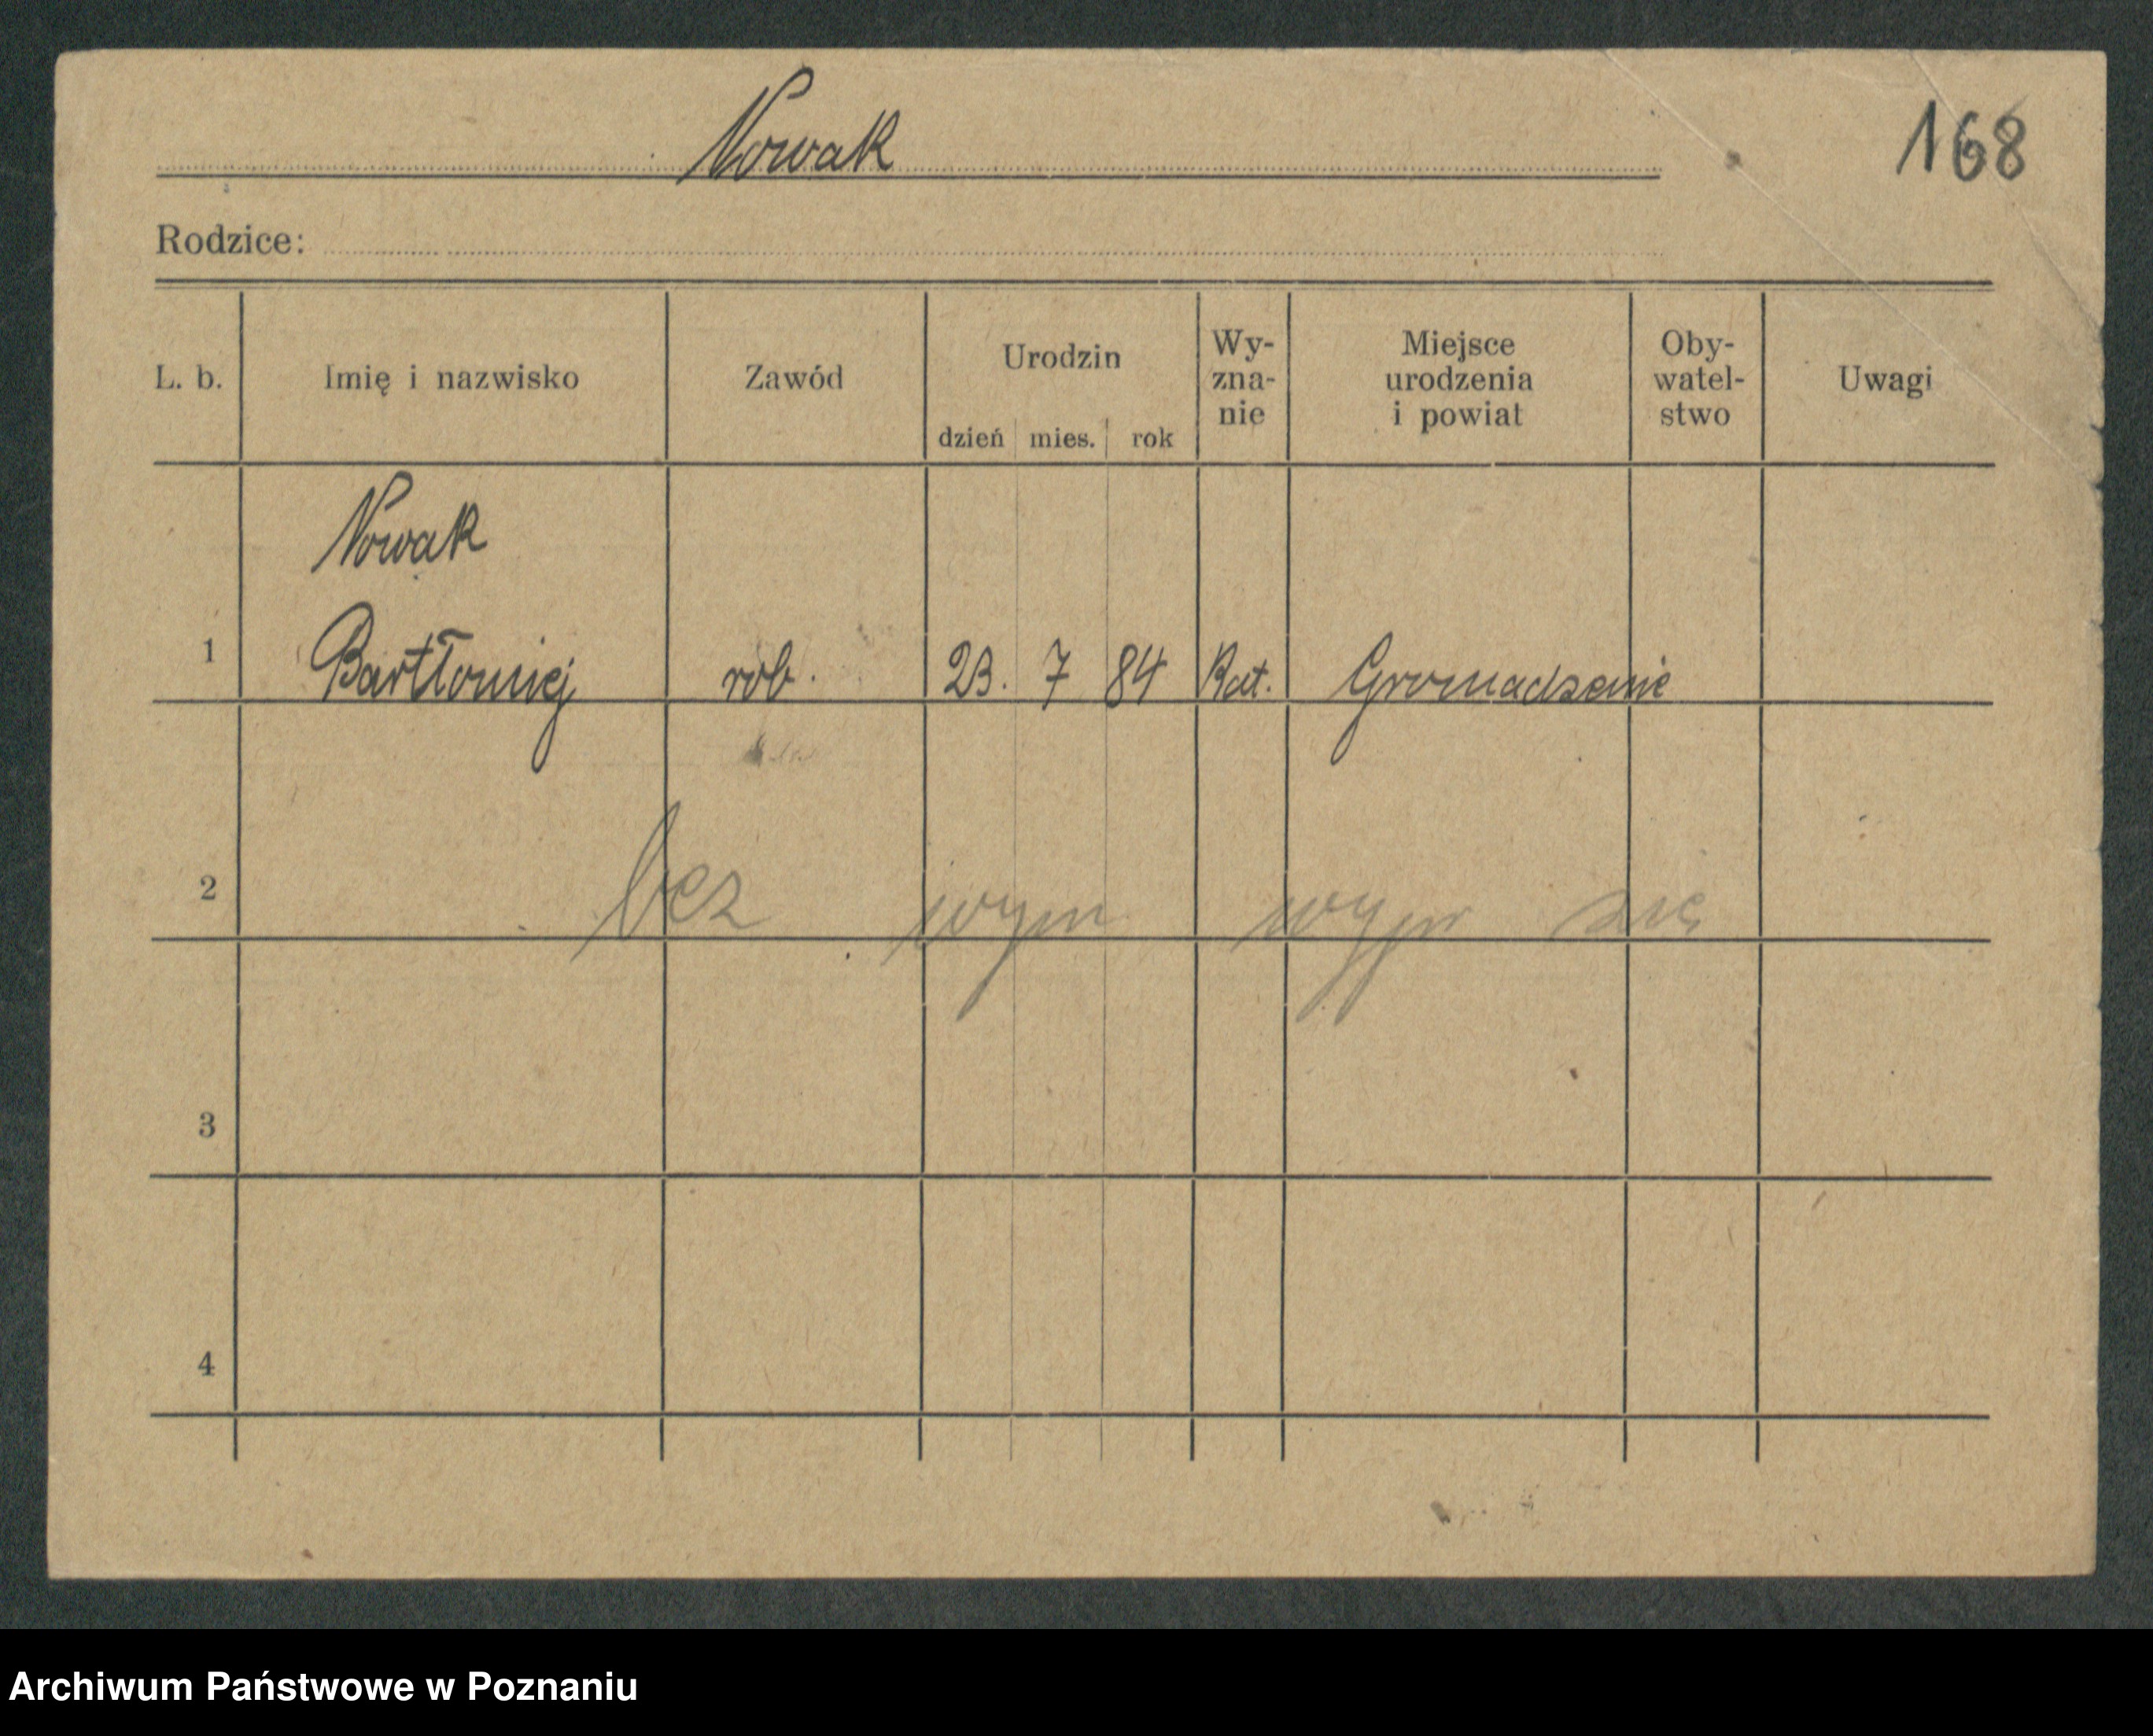 Nowak
168
Rodzice:
L. b. Imię i nazwisko Zawód Urodzin dzień mies. rok Wy-zna-nie Miejsce urodzenia i powiat Oby-watel-stwo Uwagi
Nowak
1 Bartłomiej rob. 23. 7 84 Kat. Gromadzenie
2 bez wym wypr się
3
4
Archiwum Państwowe w Poznaniu